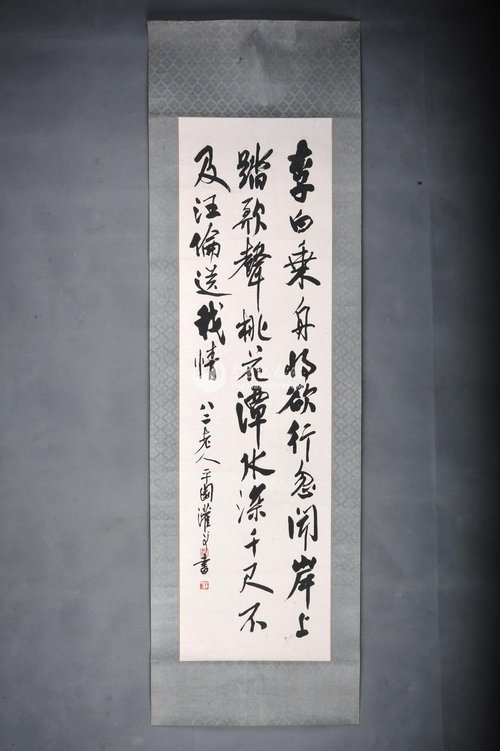 李白乘舟将欲行忽闻岸上
踏歌聲桃花潭水深千尺不
及汪倫送我情
八二老人平園灌之書